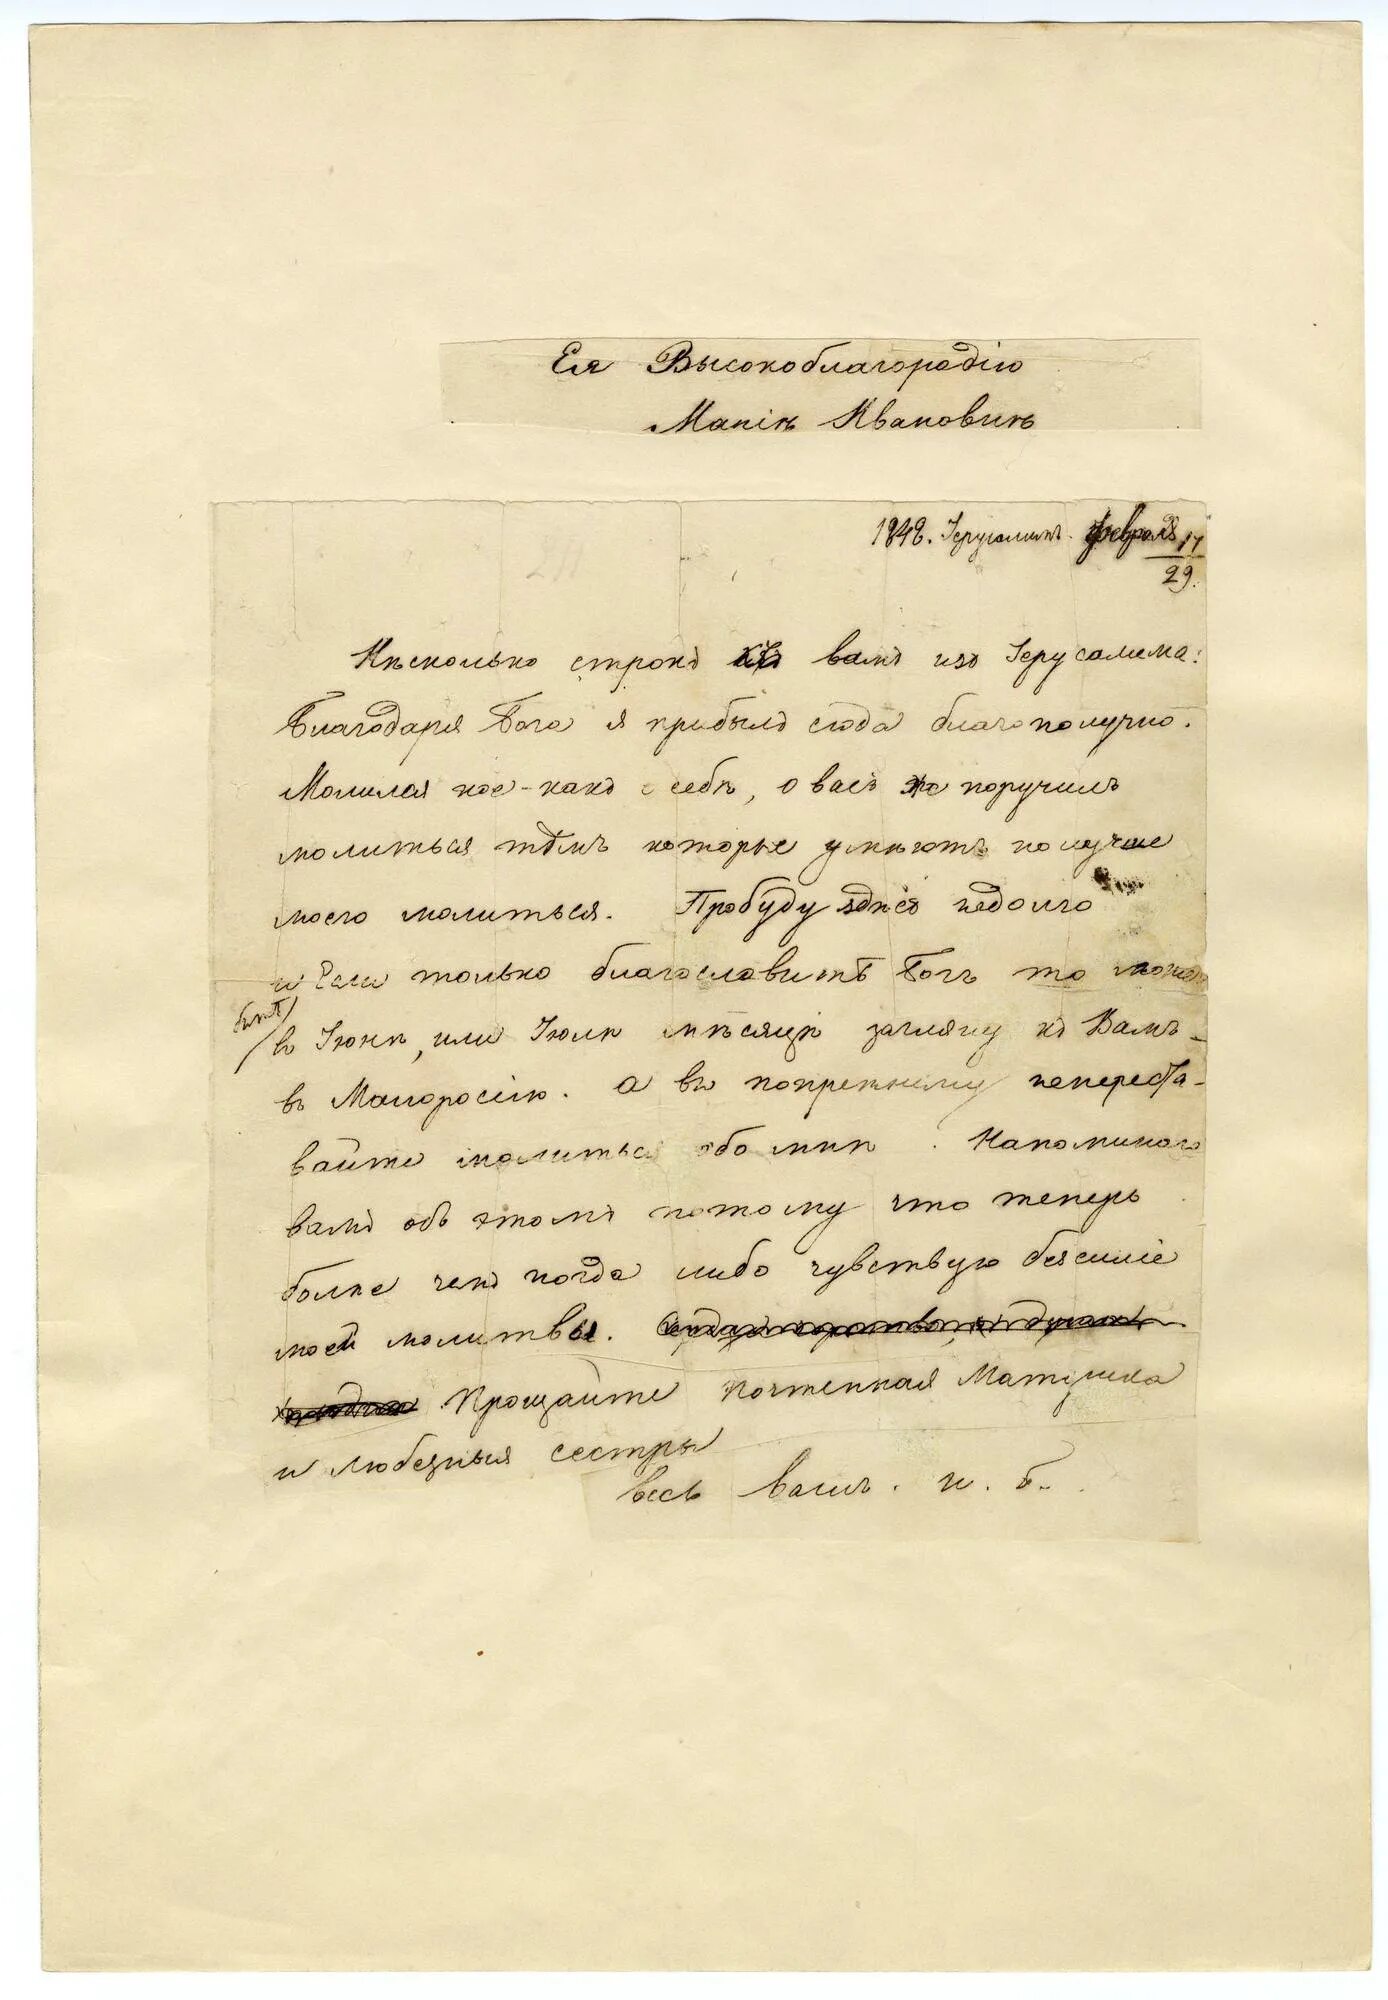 Ея Высокоблагородію
Маріѣ Ивановнѣ
1848. Іерусалимъ. Февраля 17/29.
Нѣсколько строкъ къ вамъ изъ Іерусалима:
Благодаря Бога я прибылъ сюда благополучно.
Молился кое-какъ о себѣ, о васъ же поручилъ
молиться тѣмъ которые умѣютъ получше
моего молиться. Пробуду здѣсь недолго
и если только благословитъ Богъ то може
быть
въ Іюнѣ, или Іюлѣ мѣсяцѣ загляну къ Вамъ
въ Малоросію. а вы попрежнему неперета-
вайте молиться обо мнѣ. Напоминаю
вамъ объ этомъ потому что теперь
болѣе чемъ когда либо чувствую безсиліе
моей молитвы.
Прощайте почтенная Матушка
и любезныя сестры
весь вашъ. Н. Г.